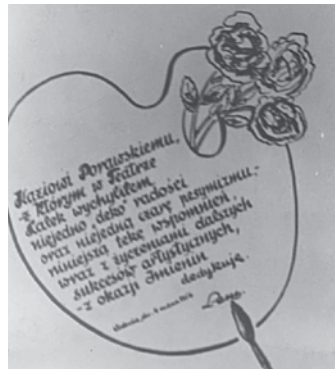 Kaziowi Porawskiemu,
-z którym w Teatrze
Lalek wychyliłem
niejedno "deko" radości
oraz niejedną czarę pesymizmu,-
niniejszą tekę wspomnień,
wraz z życzeniami dalszych
sukcesów artystycznych,
-z okazji imienin
dedykuję.